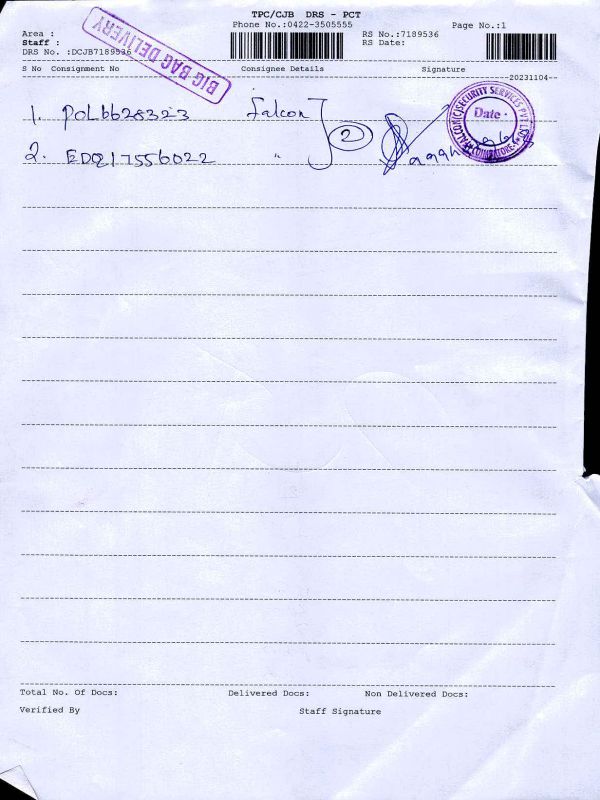 TPC/CJB DRS - PCT
Phone No.:0422-3505555
Page No.:1
Area :
RS No.:7189536
Staff :
RS Date:
DRS No. :DCJB7189536
BIG BAG DELIVERY
S No Consignment No Consignee Details Signature
--20231104--
1. POL6628323 Falcon
2. EDQ17556022 " 2
FALCON SECURITY SERVICES PVT LTD
Date
COIMBATORE
Total No. Of Docs: Delivered Docs: Non Delivered Docs:
Verified By Staff Signature